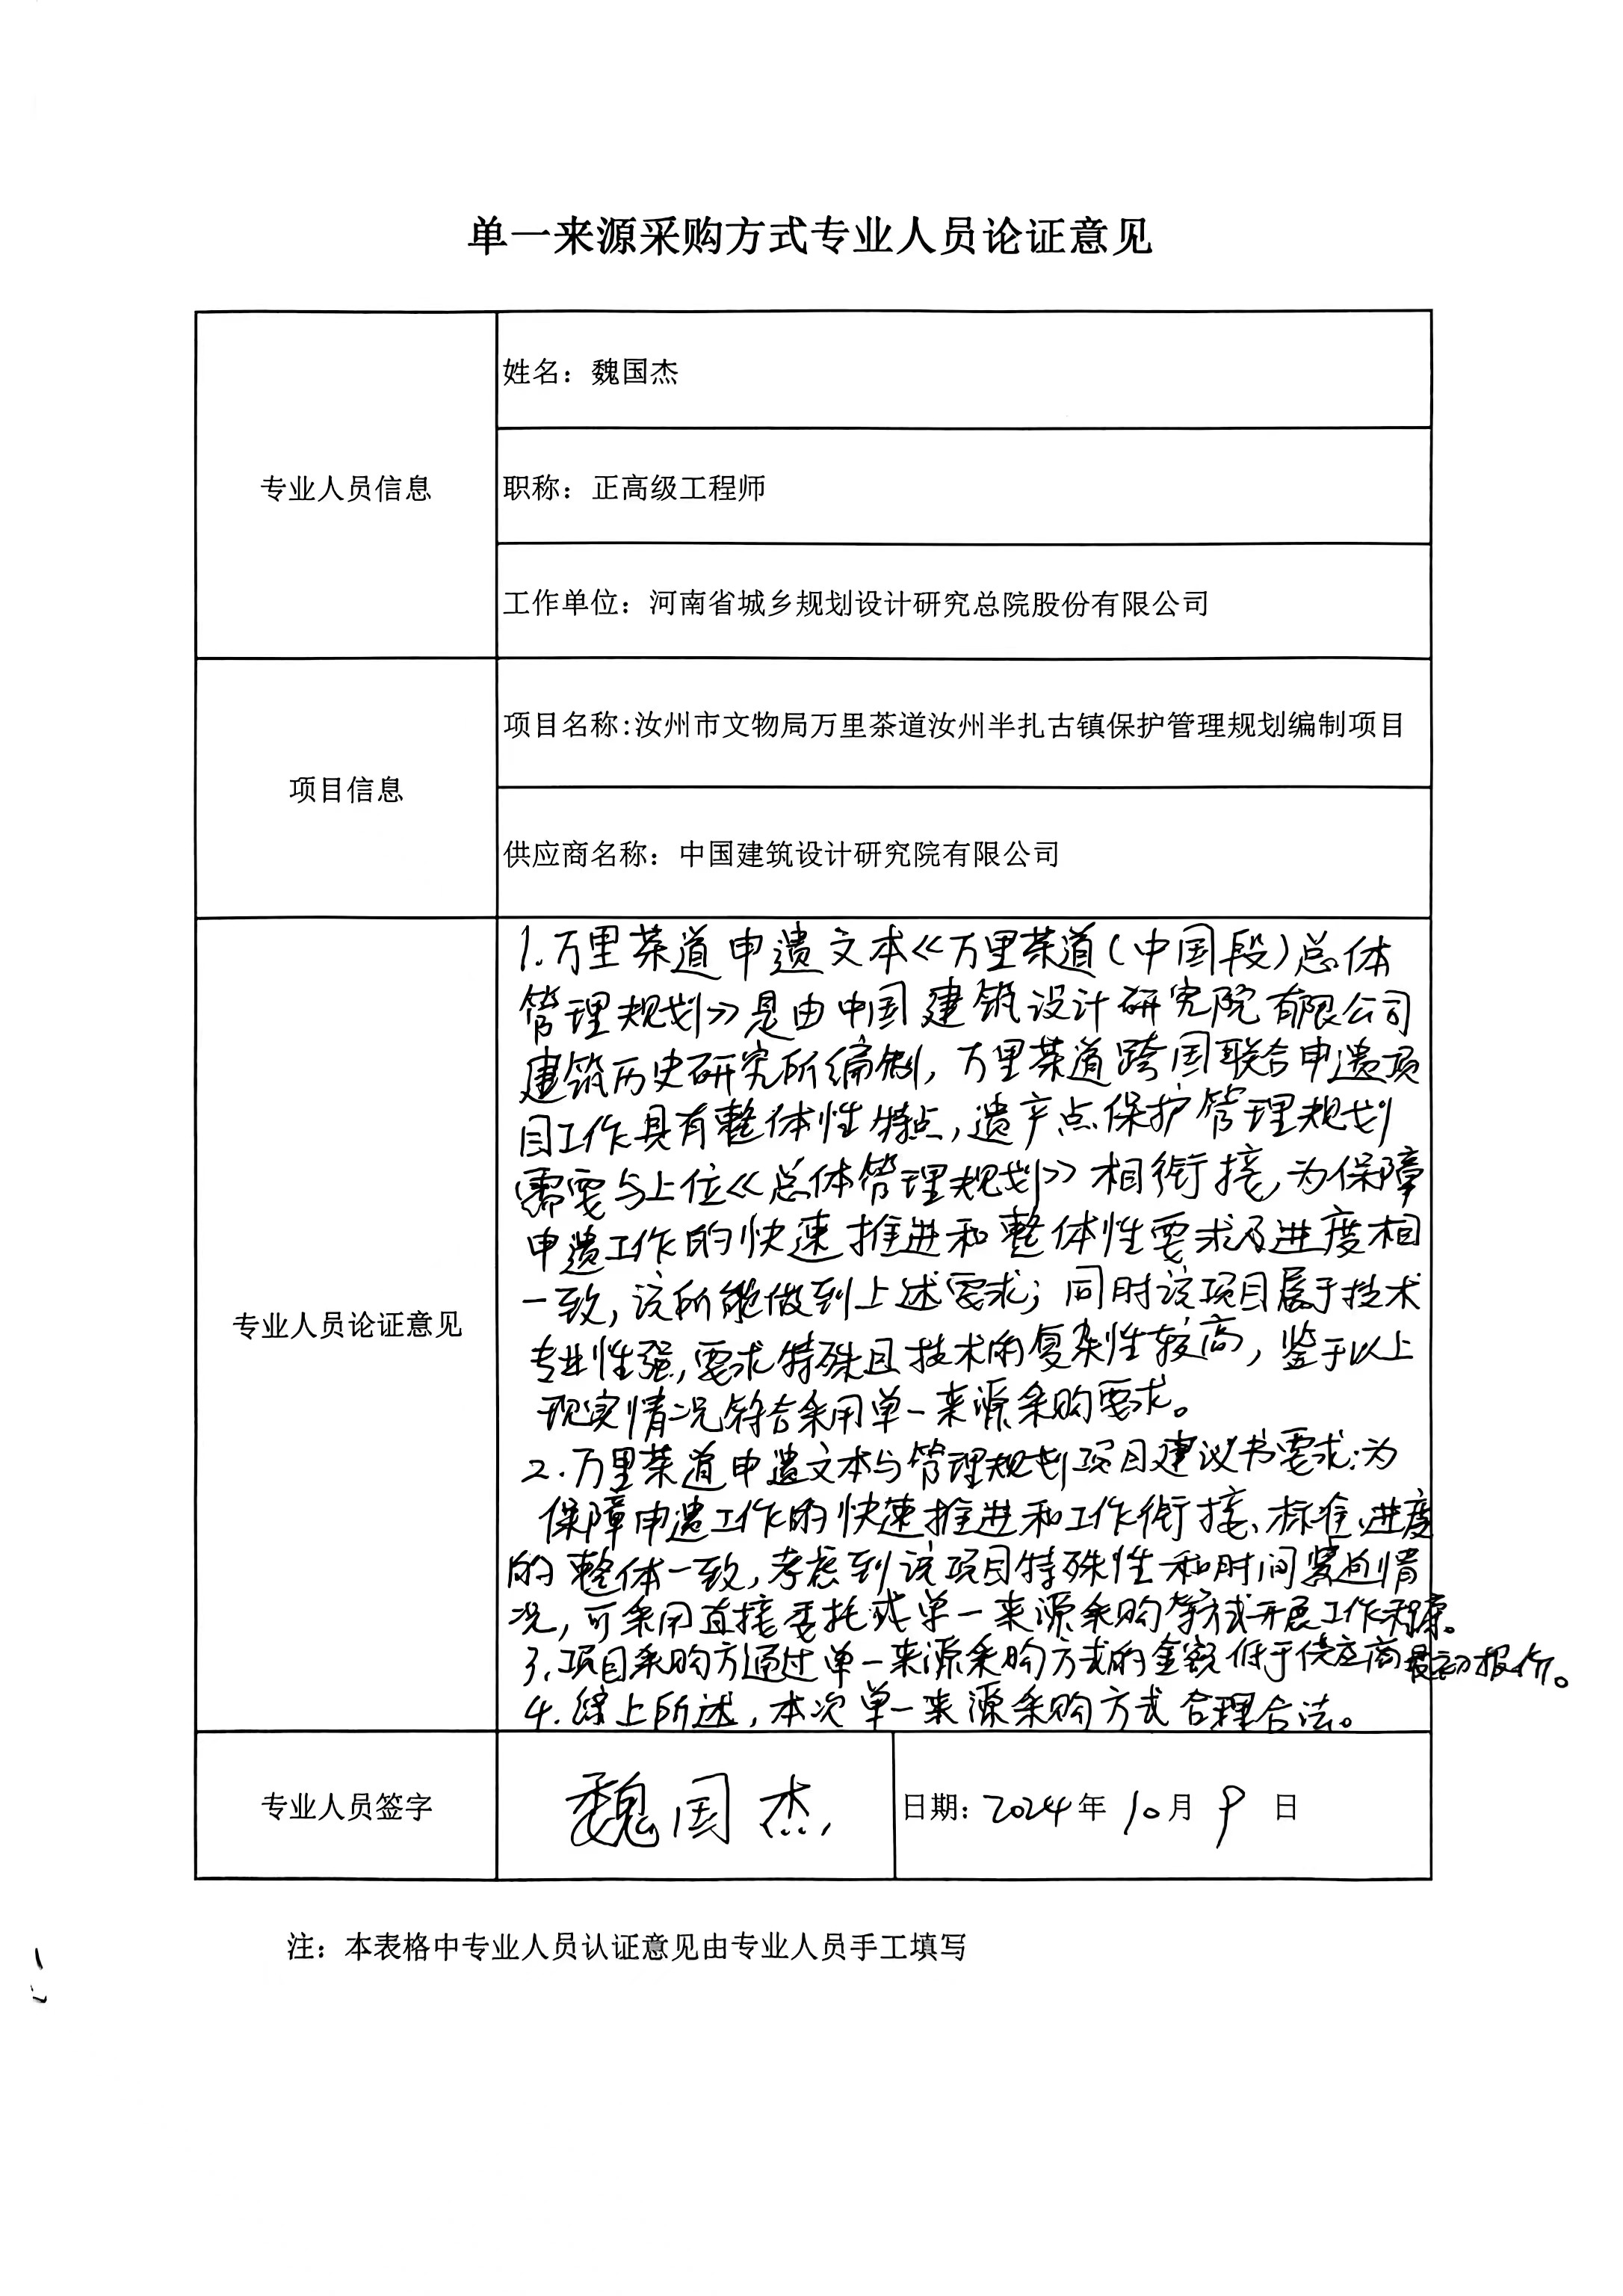 单一来源采购方式专业人员论证意见
专业人员信息
姓名：魏国杰
职称：正高级工程师
工作单位：河南省城乡规划设计研究总院股份有限公司
项目信息
项目名称：汝州市文物局万里茶道汝州半扎古镇保护管理规划编制项目
供应商名称：中国建筑设计研究院有限公司
专业人员论证意见
1.万里茶道申遗文本《万里茶道(中国段)总体
管理规划》是由中国建筑设计研究院有限公司
建筑历史研究所编制，万里茶道跨国联合申遗项
目工作具有整体性特点，遗产点保护管理规划
需要与上位《总体管理规划》相衔接，为保障
申遗工作的快速推进和整体性要求及进度相
一致，该所能做到上述要求；同时该项目属于技术
专业性强，要求特殊且技术的复杂性较高，鉴于以上
现实情况符合采用单一来源采购要求。
2.万里茶道申遗文本与管理规划项目建议书要求：为
保障申遗工作的快速推进和工作衔接、标准、进度
的整体一致，考虑到该项目特殊性和时间紧迫情
况，可采用直接委托或单一来源采购等方式开展工作
3.项目采购方通过单一来源采购方式的金额低于供应商最初报价。
4.综上所述，本次单一来源采购方式合理合法。
专业人员签字
魏国杰
日期：2024年10月9日
注：本表格中专业人员认证意见由专业人员手工填写